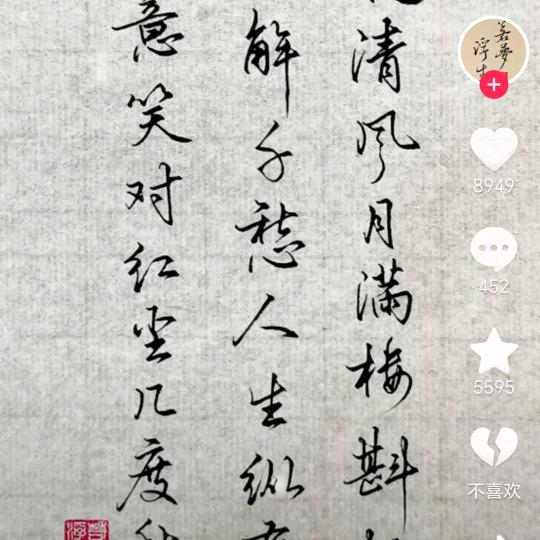 清风月满楼斟
解千愁人生纵
意笑对红尘几度
若梦
浮生
8949
452
5595
不喜欢